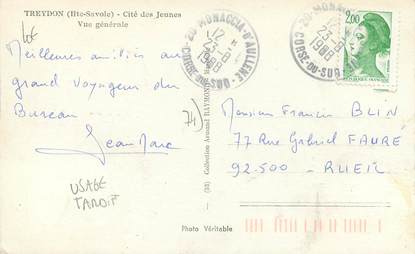 TREYDON (Hte-Savoie) - Cité des Jeunes
Vue générale
Meilleures amitiés au
grand voyageur du
Bureau
Jean Marc
USAGE
TARDIF
74)
(53) Collection Armand RAYMOND
Photo Véritable
20 MONACCIA-D'AULLENE
12
23-8
1988
CORSE-DU-SUD
20 MONACCIA
12
23-8
1988
CORSE-DU-SUD
2,00
Monsieur Francis BLIN
77 Rue Gabriel FAURÉ
92-500 - RUEIL